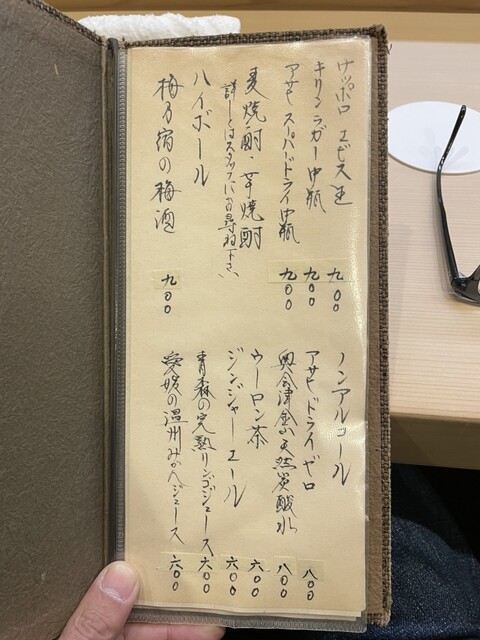 サッポロ エビス生 九〇〇
キリン ラガー中瓶 九〇〇
アサヒ スーパードライ中瓶 九〇〇
麦焼酎・芋焼酎
詳しくはスタッフにお尋ね下さい
ハイボール
梅乃宿の梅酒 九〇〇
ノンアルコール
アサヒ ドライゼロ 八〇〇
奥会津金山天然炭酸水 八〇〇
ウーロン茶 六〇〇
ジンジャーエール 六〇〇
青森の完熟リンゴジュース 六〇〇
愛媛の温州みかんジュース 六〇〇